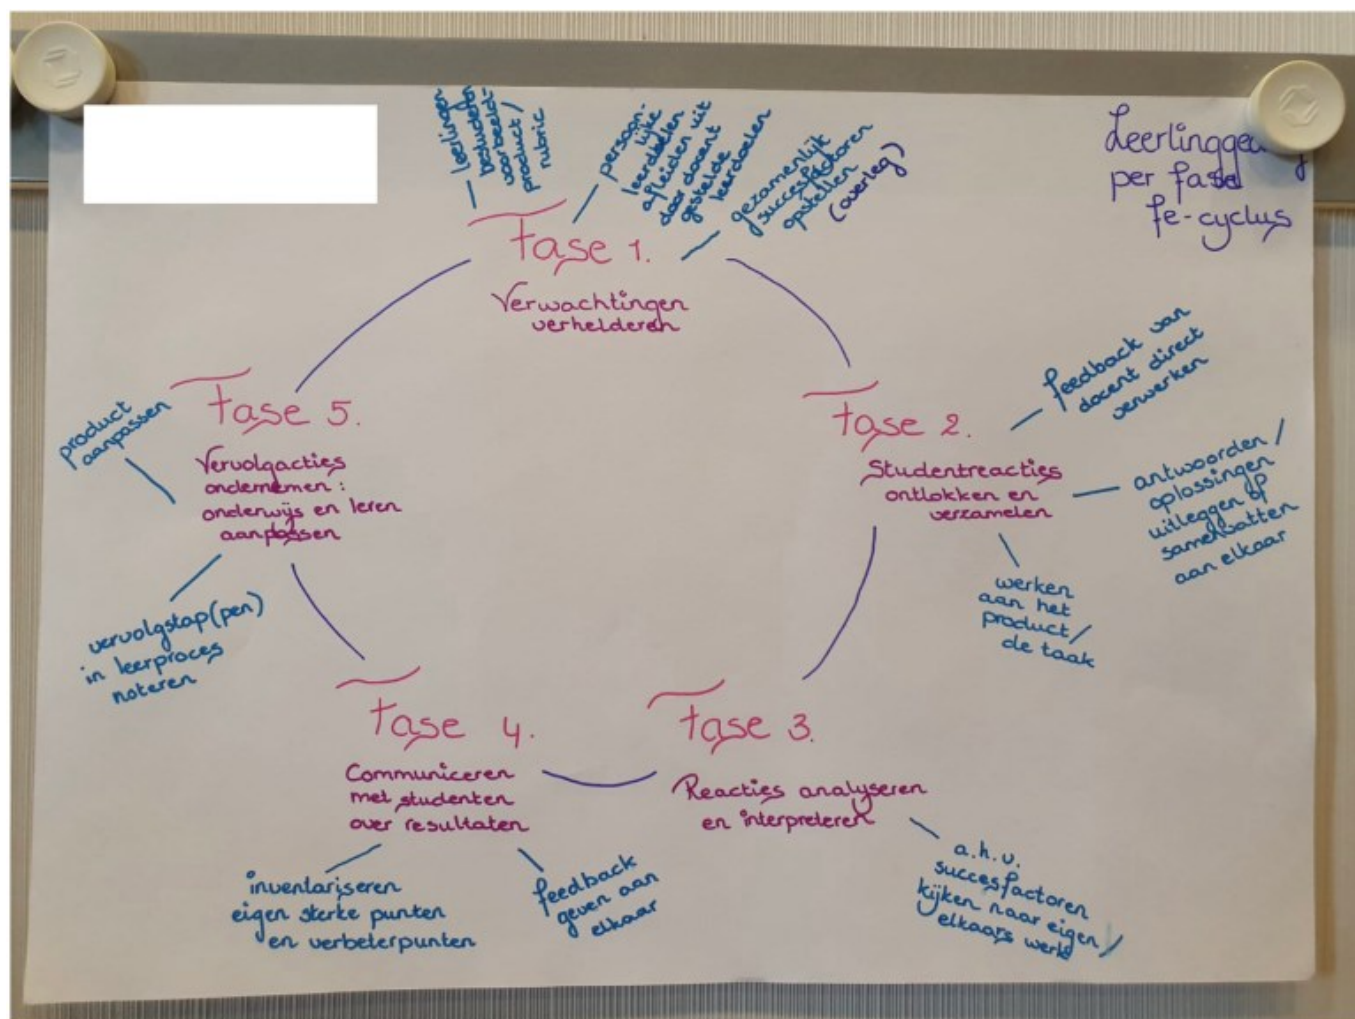 Leerlingged
per fase
fe-cyclus
leerlingen
bestuderen
voorbeeld-
product/
rubric
persoon-
lijke
leerdoelen
afleiden uit
door docent
gestelde
leerdoelen
gezamenlijk
succesfactoren
opstellen
(overleg)
Fase 1.
Verwachtingen
verhelderen
Fase 2.
Studentreacties
ontlokken en
verzamelen
feedback van
docent direct
verwerken
antwoorden/
oplossingen
uitleggen of
samenvatten
aan elkaar
werken
aan het
product/
de taak
Fase 3.
Reacties analyseren
en interpreteren
a.h.v.
succesfactoren
kijken naar eigen/
elkaars werk
Fase 4.
Communiceren
met studenten
over resultaten
inventariseren
eigen sterke punten
en verbeterpunten
feedback
geven aan
elkaar
Fase 5.
Vervolgacties
ondernemen:
onderwijs en leren
aanpassen
product
aanpassen
vervolgstap(pen)
in leerproces
noteren